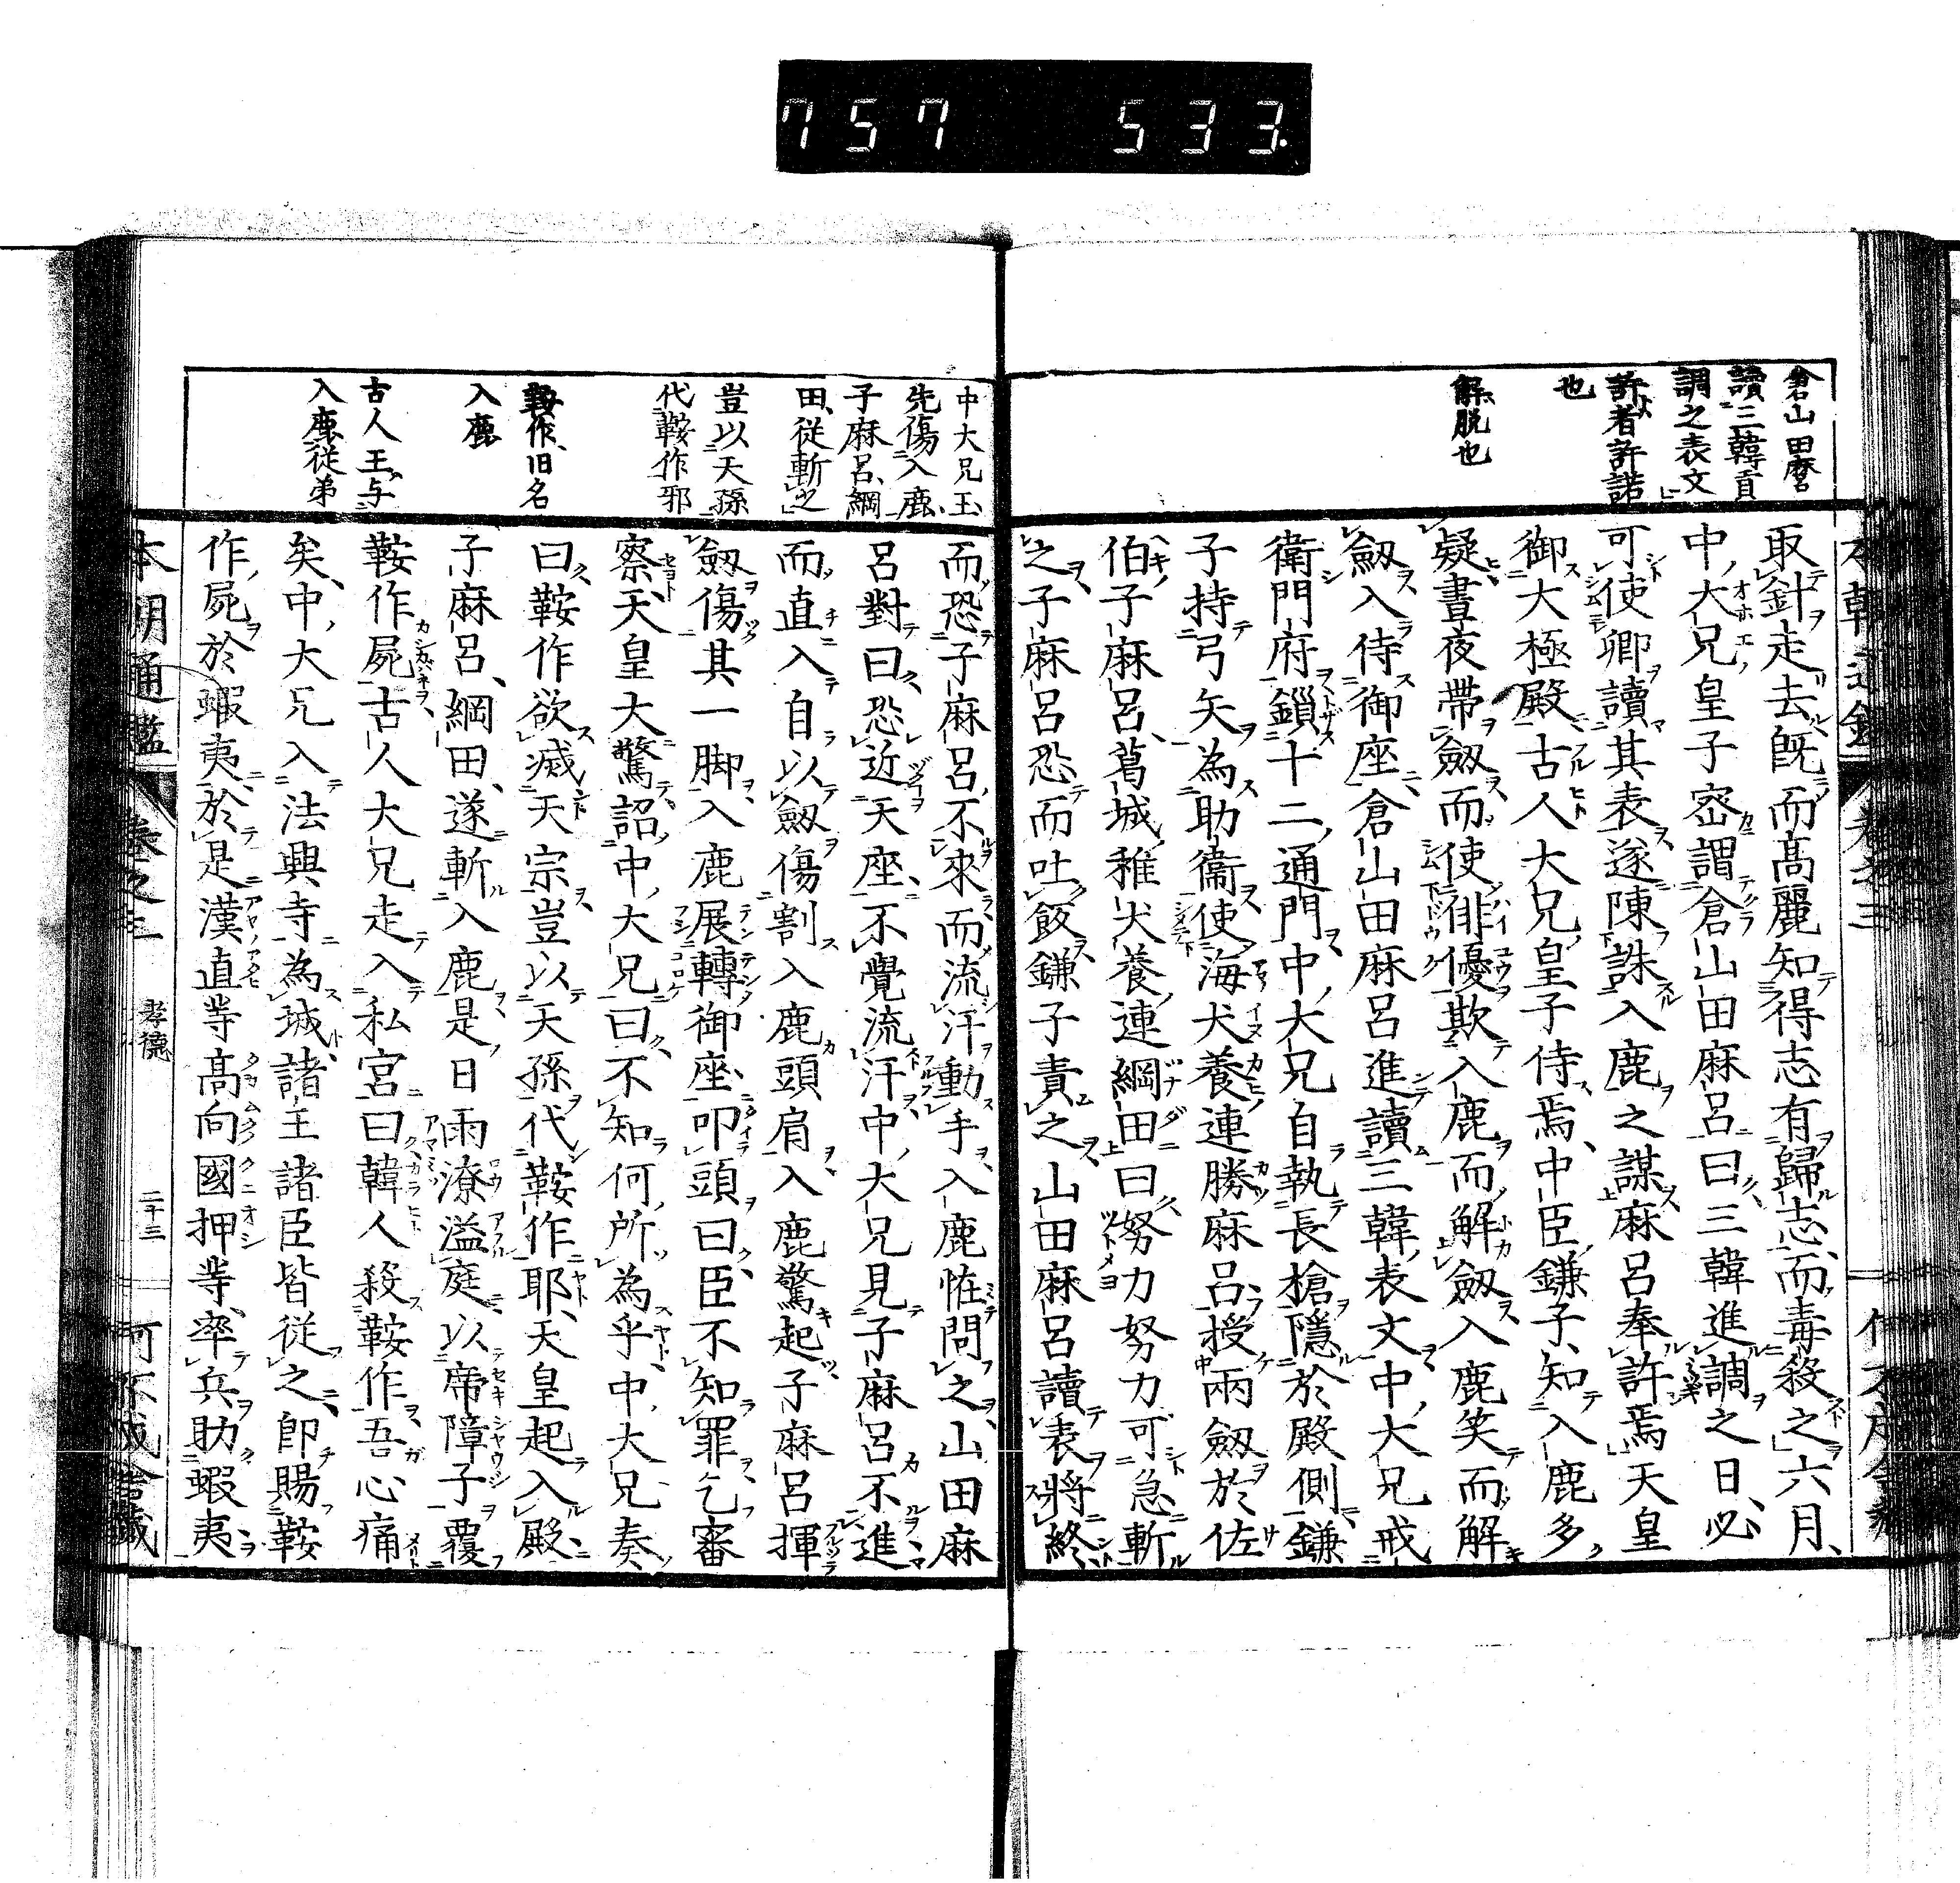 757 533
倉山田麿
讀三韓貢
調之表文
許者許諾
也
解脱也
取針走去既而髙麗知得志有歸志而毒殺之六月
中大兄皇子密謂倉山田麻呂曰三韓進調之日必
可使卿讀其表遂陳誅入鹿之謀麻呂奉許焉天皇
御大極殿古人大兄皇子侍焉中臣鎌子知入鹿多
疑晝夜帶劔而使俳優欺入鹿而解劔入鹿笑而解
劔入侍御座倉山田麻呂進讀三韓表文中大兄戒
衛門府鎖十二通門中大兄自執長槍隱於殿側鎌
子持弓矢為助衞使海犬養連勝麻呂授兩劔於佐
伯子麻呂葛城稚犬養連綱田曰努力努力可急斬
之子麻呂恐而吐飯鎌子責之山田麻呂讀表將終
中大兄王
先傷入鹿
子麻呂綱
田従斬之
豈以天孫
代鞍作邪
鞍作旧名
入鹿
古人王与
入鹿従弟
而恐子麻呂不來而流汗動手入鹿恠問之山田麻
呂對曰恐近天座不覺流汗中大兄見子麻呂不進
而直入自以劔傷割入鹿頭肩入鹿驚起子麻呂揮
劔傷其一脚入鹿展轉御座叩頭曰臣不知罪乞審
察天皇大驚詔中大兄曰不知何所為乎中大兄奏
曰鞍作欲滅天宗豈以天孫代鞍作耶天皇起入殿
子麻呂綱田遂斬入鹿是日雨潦溢庭以席障子覆
鞍作屍古人大兄走入私宮曰韓人殺鞍作吾心痛
矣中大兄入法興寺為城諸王諸臣皆従之即賜鞍
作屍於蝦夷於是漢直等髙向國押等率兵助蝦夷
本朝通鑑 卷之三 孝德 二十三